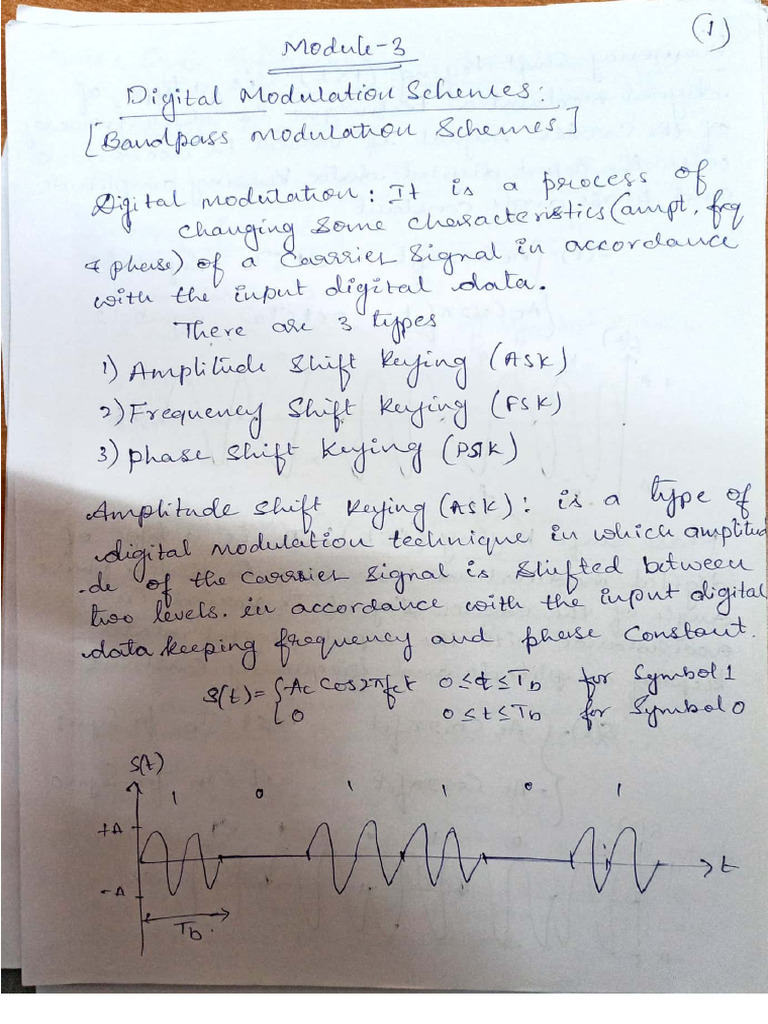 (1)
Module-3
Digital Modulation Schemes:
[Bandpass Modulation Schemes]
Digital modulation: It is a process of
changing some characteristics (ampt, freq
& phase) of a carrier signal in accordance
with the input digital data.
There are 3 types
1) Amplitude Shift Keying (ASK)
2) Frequency Shift Keying (FSK)
3) phase shift keying (PSK)
Amplitude shift keying (ASK): is a type of
digital modulation technique in which amplitu
-de of the carrier signal is shifted between
two levels. in accordance with the input digital
data keeping frequency and phase constant.
S(t) = { Ac Cos2πfct 0≤t≤Tb for Symbol 1
{ 0 0≤t≤Tb for Symbol 0
S(t)
1 0 1 1 0 1
+A
t
-A
Tb.